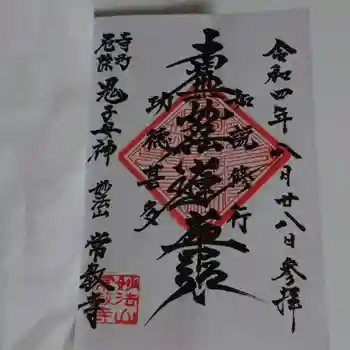 令和四年八月廿八日参拝
如説修行
南無妙法蓮華経
功徳甚多
厄除
鬼子母神
妙法山
常教寺